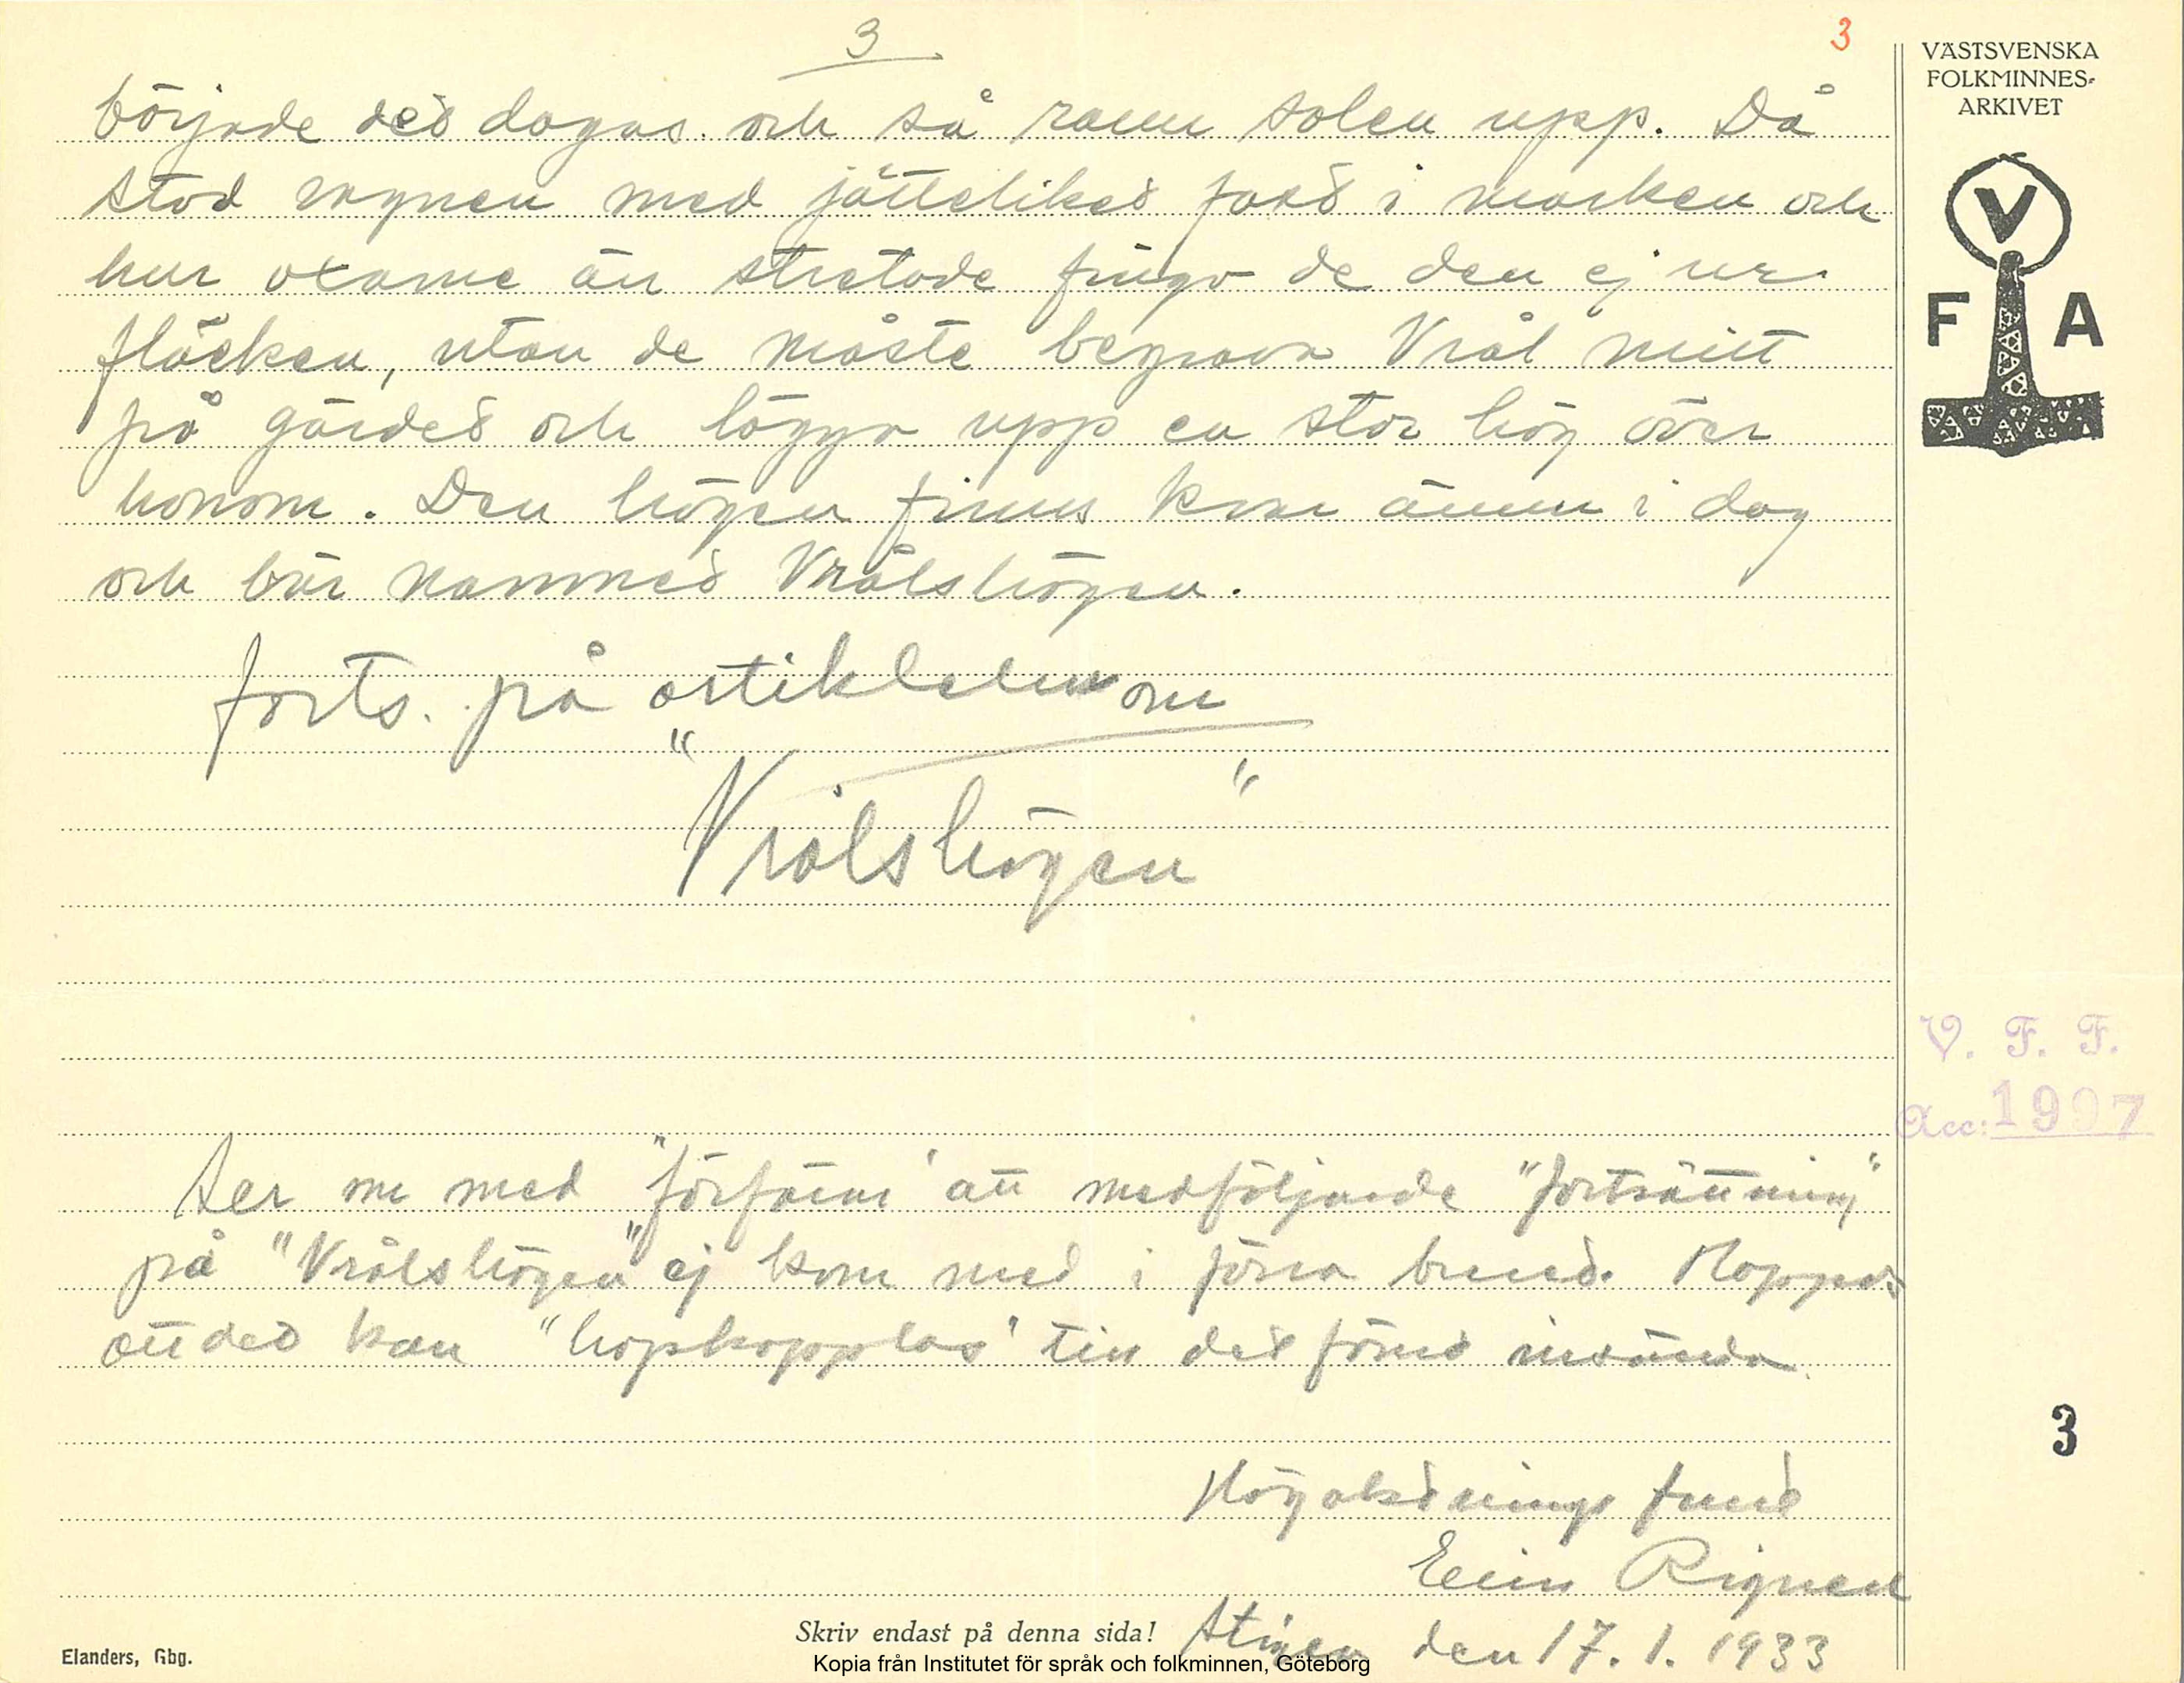 3
3
VÄSTSVENSKA
FOLKMINNES-
ARKIVET
V
F A
började det dagas och så rann solen upp. Då
stod vagnen med jättelikt fart i marken och
hur oxarne än stretade fingo de den ej ur
fläcken, utan de måste begrava Vrål mitt
på gärdet och lägga upp en stor hög över
honom. Den högen finns kvar ännu i dag
och bär namnet Vrålshögen.
forts. på artikeln om
"Vrålshögen"
V. F. F.
Acc: 1997
Ser nu med "förfäran" att medföljande "fortsättning"
på "Vrålshögen" ej kom med i förra bunt. Hoppas
att det kan "hopkopplas" till det förut insända.
3
Högaktningsfullt
Rignell
den 17. 1. 1933
Skriv endast på denna sida!
Elanders, Gbg.
Kopia från Institutet för språk och folkminnen, Göteborg